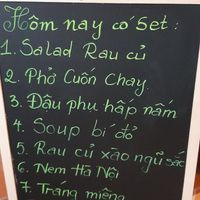 Hôm nay có Set:
1. Salad Rau củ
2. Phở Cuốn Chay.
3. Đậu phu hấp nấm
4. Soup bí đỏ
5. Rau củ xào ngũ sắc
6. Nem Hà Nội
7. Tráng miệng